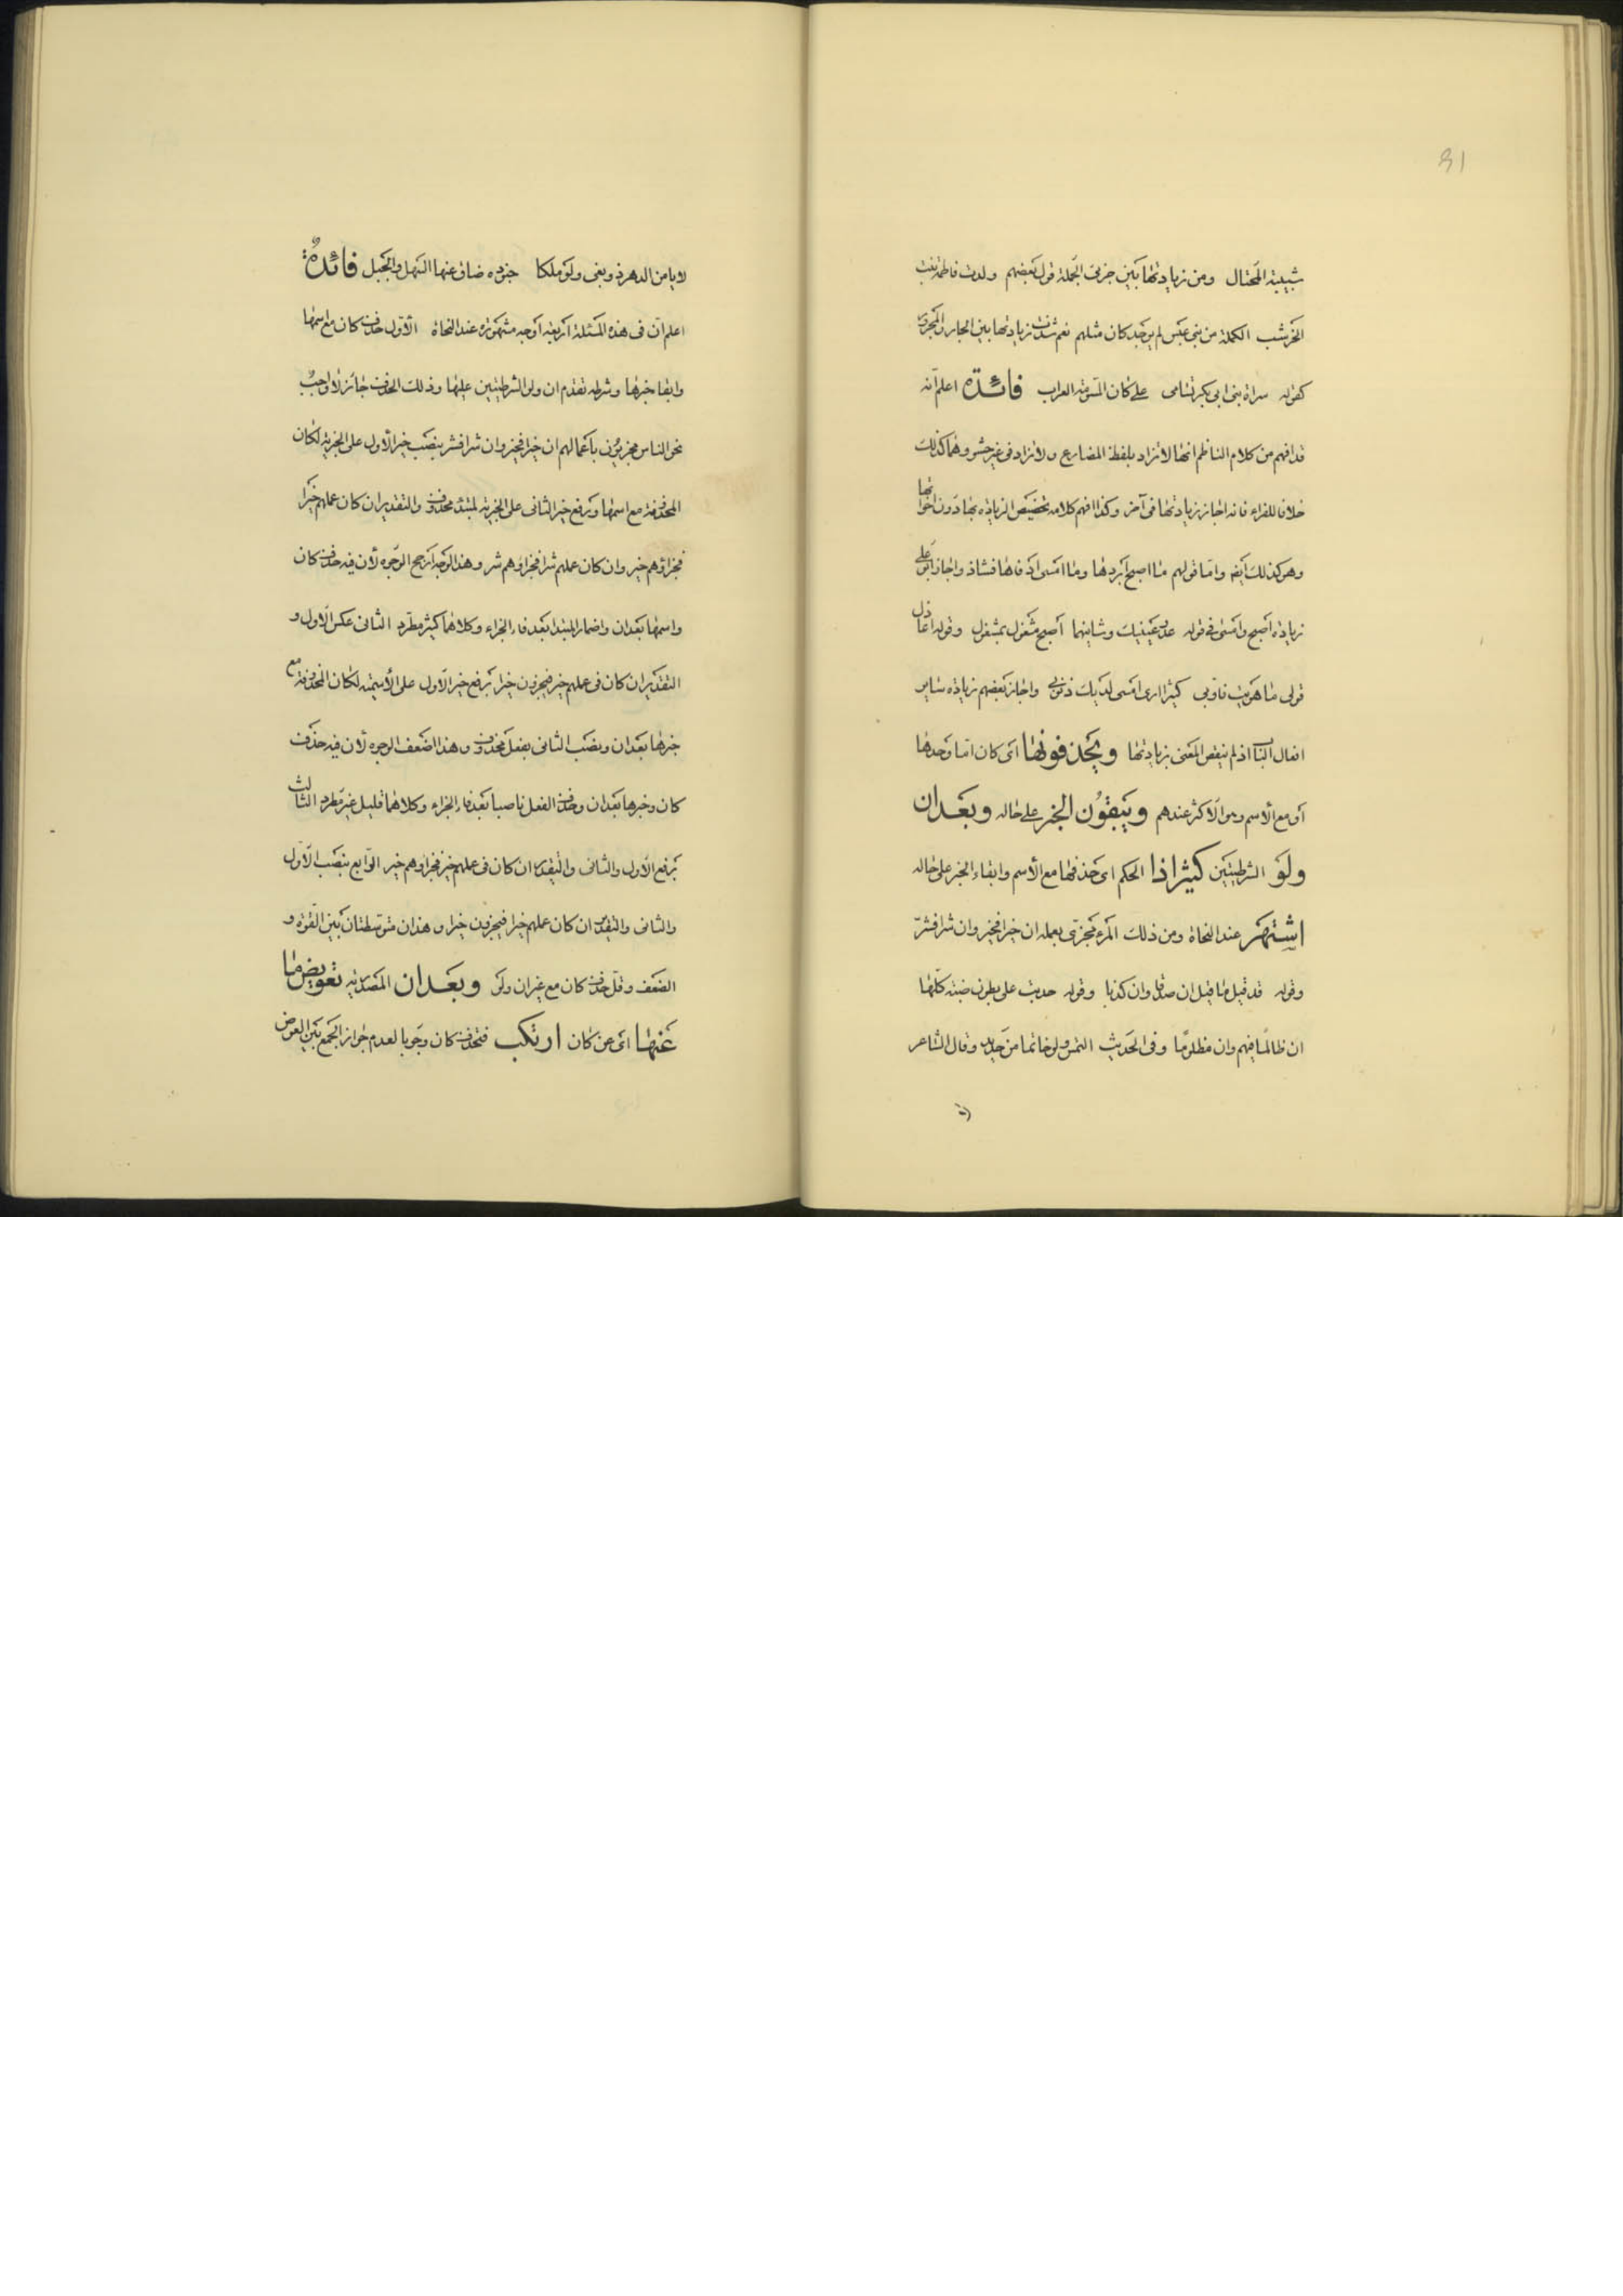 شبيبة المحتال ومن زيادتها بين جزئى الجملة قول بعضهم ولدت فاطمة بنت
الخرشب الكملة من بنى عبس لم يوجد كان مثلهم نعم شذت زيادتها بين الجار والمجرور
كقوله سراة بنى ابى بكر تسامى على كان المسومة العراب فائدة اعلم انه
قد افهم من كلام الناظم انها لا تزاد بلفظة المضارع ولا تزاد فى غير حشو وهما كذلك
خلافا للفراء فانه اجاز زيادتها فى آخر وكذا افهم كلامه تخصيص الزيادة بها دون اخواتها
وهو كذلك ايضه واما قولهم ما اصبح ابردها وما امسى ادفاها فشاذ واجاز ابو على
زيادة اصبح وامسى فى قوله عدو عينيك وشانيهما اصبح مشغول بمشغول وقوله اعاذل
قولى ما هويت فاوبى كثيرا ارى امسى لديك ذنوبى واجاز بعضهم زيادة ساير
افعال الباب اذ لم ينقص المعنى بزيادتها ويحذفونها اى كان اما وحدها
او مع الاسم وهو الاكثر عندهم ويبقون الخبر على حاله وبعد ان
ولو الشرطيتين كثيرا ذا الحكم اى حذفها مع الاسم وابقاء الخبر على حاله
اشتهر عند النحاة ومن ذلك المرء مجزى بعمله ان خيرا فخير وان شرا فشر
وقوله قد قيل ما قيل ان صدقا وان كذبا وقوله حدبت على بطون ضبة كلها
ان ظالما فيهم وان مظلوما وفى الحديث التمس ولو خاتما من حديد وقال الشاعر
لا
91
لا يامن الدهر ذو بغى ولو ملكا جنوده ضاق عنها السهل والجبل فائدة
اعلم ان فى هذه المسئلة اربعة اوجه مشهورة عند النحاة الاول حذف كان مع اسمها
وابقا خبرها وشرطه تقدم ان ولو الشرطيتين عليها وذلك الحذف جائز لا واجب
نحو الناس مجزيون باعمالهم ان خيرا فخير وان شرا فشر بنصب خير الاول على الخبرية لكان
المحذوفة مع اسمها ورفع خير الثانى على الخبرية لمبتدء محذوف والتقدير ان كان عملهم خيرا
فجزاؤهم خير وان كان عملهم شرا فجزاؤهم شر وهذا الوجه ارجح الوجوه لأن فيه حذف كان
واسمها بعد ان واضمار المبتدا بعد فاء الجزاء وكلاهما كثير مطرد الثانى عكس الاول و
التقدير ان كان فى عملهم خير فيجزون خيرا برفع خير الاول على الأسمية لكان المحذوفة مع
خبرها بعد ان ونصب الثانى بفعل محذوف وهذا اضعف الوجوه لأن فيه حذف
كان وخبرها بعد ان وحذف الفعل ناصبا بعد فاء الجزاء وكلاهما قليل غير مطرد الثالث
برفع الاول والثانى والتقدير ان كان فى عملهم خير فجزاؤهم خير الرابع بنصب الاول
والثانى والتقدير ان كان عملهم خيرا فيجزون خيرا وهذان متوسطتان بين القوة و
الضعف وقل حذف كان مع غير ان ولو وبعد ان المصدرية تعويض ما
عنها اى عن كان ارتكب فتحذف كان وجوبا لعدم جواز الجمع بين العوض